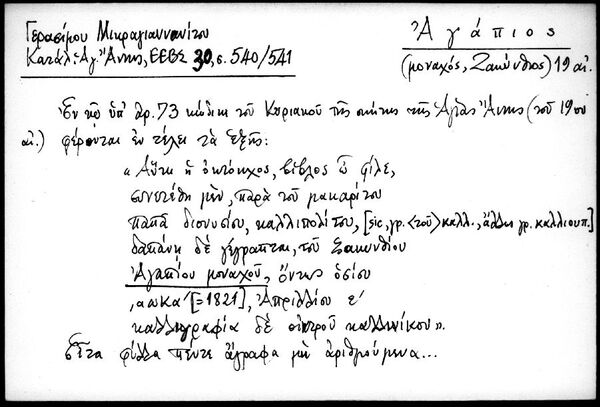 Γερασίμου Μικραγιαννανίτου
Κατάλ. Ἁγ. Ἄννης, ΕΕΒΣ 30, σ. 540/541
Ἀγάπιος
(μοναχός, Ζακύνθιος) 19 αἰ.
Ἐν τῷ ὑπ' ἀρ. 73 κώδικι τοῦ Κυριακοῦ τῆς σκήτης τῆς Ἁγίας Ἄννης (τοῦ 19ου
αἰ.) φέρονται ἐν τέλει τὰ ἑξῆς:
«Αὕτη ἡ ὀκτώηχος, βίβλος ὦ φίλε,
συνετέθη μὲν, παρὰ τοῦ μακαρίτου
παπᾶ διονυσίου, καλλιπολίτου, [sic, γρ. <τοῦ> καλλ., ἄλλη γρ. καλλιουπ.]
δαπάνῃ δὲ γέγραπται, τοῦ Ζακυνθίου
Ἀγαπίου μοναχοῦ, ὄντως ὁσίου
͵αωκα΄ [=1821], Ἀπριλλίου ε΄
καλλιγραφία δὲ οἰκτροῦ καλλινίκου».
εἶτα φύλλα πέντε ἄγραφα μὴ ἀριθμούμενα...